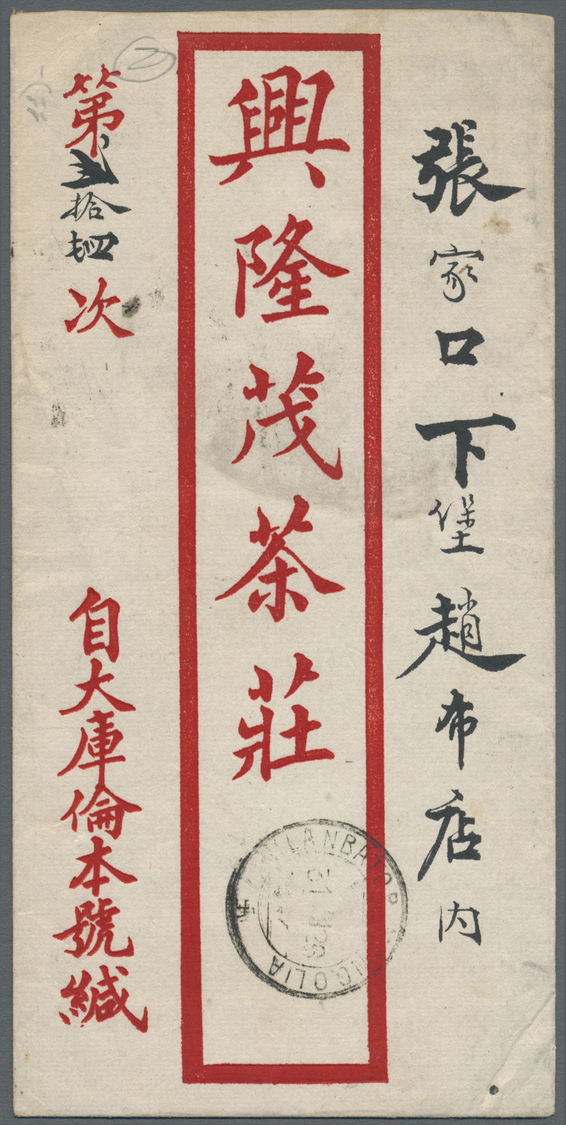 張家口下堡趙布店內
興隆茂茶莊
第貳拾肆次
自大庫倫本號緘
ULANBATOR
MONGOLIA